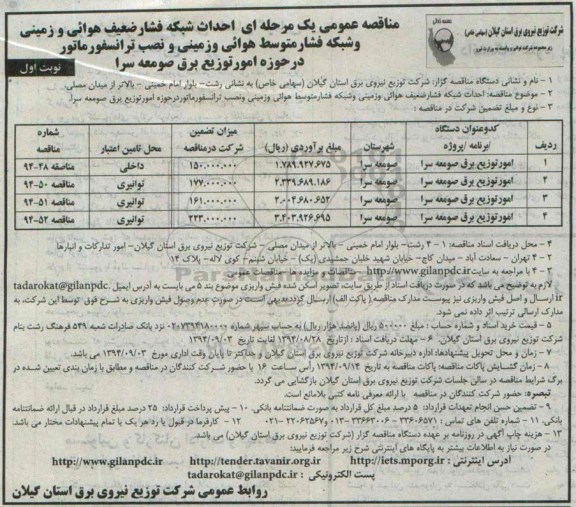 شرکت توزیع نیروی برق استان گیلان (سهامی خاص)
مناقصه عمومی یک مرحله ای احداث شبکه فشارضعیف هوائی و زمینی
وشبکه فشارمتوسط هوائی وزمینی و نصب ترانسفورماتور
درحوزه امورتوزیع برق صومعه سرا
نوبت اول
۱ - نام و نشانی دستگاه مناقصه گزار: شرکت توزیع نیروی برق استان گیلان (سهامی خاص) به نشانی رشت- بلوار امام خمینی - بالاتر از میدان مصلی.
۲ - موضوع مناقصه: احداث شبکه فشارضعیف هوائی وزمینی وشبکه فشارمتوسط هوائی وزمینی ونصب ترانسفورماتوردرحوزه امورتوزیع برق صومعه سرا.
۳ - نوع و مبلغ تضمین شرکت در مناقصه :
ردیف | کدوعنوان دستگاه /برنامه /پروژه | شهرستان | مبلغ برآوردی (ریال) | میزان تضمین شرکت درمناقصه | محل تامین اعتبار | شماره مناقصه
۱ | امورتوزیع برق صومعه سرا | صومعه سرا | ۱.۷۸۹.۹۲۷.۶۷۵ | ۱۵۰.۰۰۰.۰۰۰ | داخلی | مناقصه ۴۸-۹۴
۲ | امورتوزیع برق صومعه سرا | صومعه سرا | ۲.۳۳۹.۶۸۹.۱۸۶ | ۱۷۷.۰۰۰.۰۰۰ | توانیری | مناقصه ۵۰-۹۴
۳ | امورتوزیع برق صومعه سرا | صومعه سرا | ۲.۰۰۲.۶۸۰.۶۵۲ | ۱۶۱.۰۰۰.۰۰۰ | توانیری | مناقصه ۵۱-۹۴
۴ | امورتوزیع برق صومعه سرا | صومعه سرا | ۳.۴۰۳.۹۲۶.۶۹۵ | ۲۲۳.۰۰۰.۰۰۰ | توانیری | مناقصه ۵۲-۹۴
۴ - محل دریافت اسناد مناقصه: ۱ - ۴ رشت- بلوار امام خمینی - بالاتر از میدان مصلی - شرکت توزیع نیروی برق استان گیلان- امور تدارکات و انبارها
۲ - ۴ تهران - سعادت آباد - میدان کاج- خیابان شهید خلبان جمشیدی (یک) - خیابان شبنم- کوی لاله- پلاک ۱۴
۳ - ۴ با مراجعه به سایت http://www.gilanpdc.ir - مناقصات و مزایده ها - مناقصات عمومی
لازم به توضیح می باشد که در صورت دریافت اسناد از طریق سایت، تصویر اسکن شده فیش واریزی موضوع بند ۵ می بایست به آدرس ایمیل tadarokat@gilanpdc.
ir ارسال و اصل فیش واریزی نیز پیوست مدارک مناقصه (پاکت الف) ارسال گردد.بدیهی است در صورت عدم وصول فیش واریزی به شرح فوق توسط این شرکت، به
مدارک ارسالی ترتیب اثر داده نمی شود.
۵ - قیمت خرید اسناد و شماره حساب : مبلغ ۵۰۰۰۰۰ ریال (پانصد هزار ریال) به حساب سپهر شماره ۰۲۰۷۳۹۴۱۸۰۰۰۰ نزد بانک صادرات شعبه ۵۴۹ فرهنگ رشت بنام
شرکت توزیع نیروی برق استان گیلان. ۶ - مهلت دریافت اسناد : ازتاریخ ۱۳۹۴/۰۸/۲۸ لغایت تاریخ ۱۳۹۴/۰۹/۰۳
۷ - زمان و محل تحویل پیشنهادها: اداره دبیرخانه شرکت توزیع نیروی برق استان گیلان و حداکثر تا پایان وقت اداری مورخ ۱۳۹۴/۰۹/۰۳ می باشد.
۸ - زمان گشایش پاکات مناقصه به تاریخ ۱۳۹۴/۰۹/۱۴ رأس ساعت ۱۶ با حضور شرکت کنندگان در مناقصه و مطابق با زمان بندی تعیین شده در
برگ شرایط مناقصه در سالن جلسات شرکت توزیع نیروی برق استان گیلان بازگشایی می گردد.
تبصره: حضور شرکت کنندگان در مناقصه با ارائه معرفی نامه کتبی بلامانع است.
۹ - تضمین حسن انجام تعهدات قرارداد: ۵ درصد مبلغ کل قرارداد به صورت ضمانتنامه بانکی. ۱۰ - پیش پرداخت قرارداد: ۲۵ درصد مبلغ قرارداد در قبال ارائه ضمانتنامه
بانکی. ۱۱ - شماره تلفن های تماس : ۳۳۳۰۶۵۷۱ - ۳۳۳۶۳۰۰۶-۰۱۳ ۲۲۰۶۲۵۶۷-۰۲۱ ۱۲ - کارفرما در قبول یا رد هر یک یا تمام پیشنهادات مختار می باشد.
۱۳ - هزینه چاپ آگهی در روزنامه بر عهده دستگاه مناقصه گزار (شرکت توزیع نیروی برق استان گیلان) می باشد.
در صورت نیاز به اطلاعات بیشتر به پایگاه های اینترنتی شرح زیر مراجعه فرمایید:
آدرس اینترنتی : http://iets.mporg.ir http://tender.tavanir.org.ir http://www.gilanpdc.ir
پست الکترونیکی : tadarokat@gilanpdc.ir
روابط عمومی شرکت توزیع نیروی برق استان گیلان